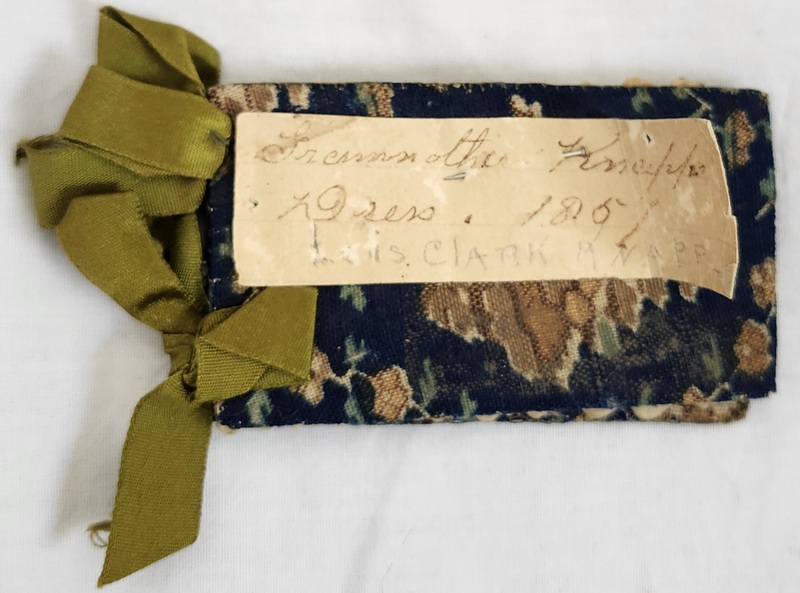 Grandmother Knapp
Dress. 1851
Lois CLARK KNAPP